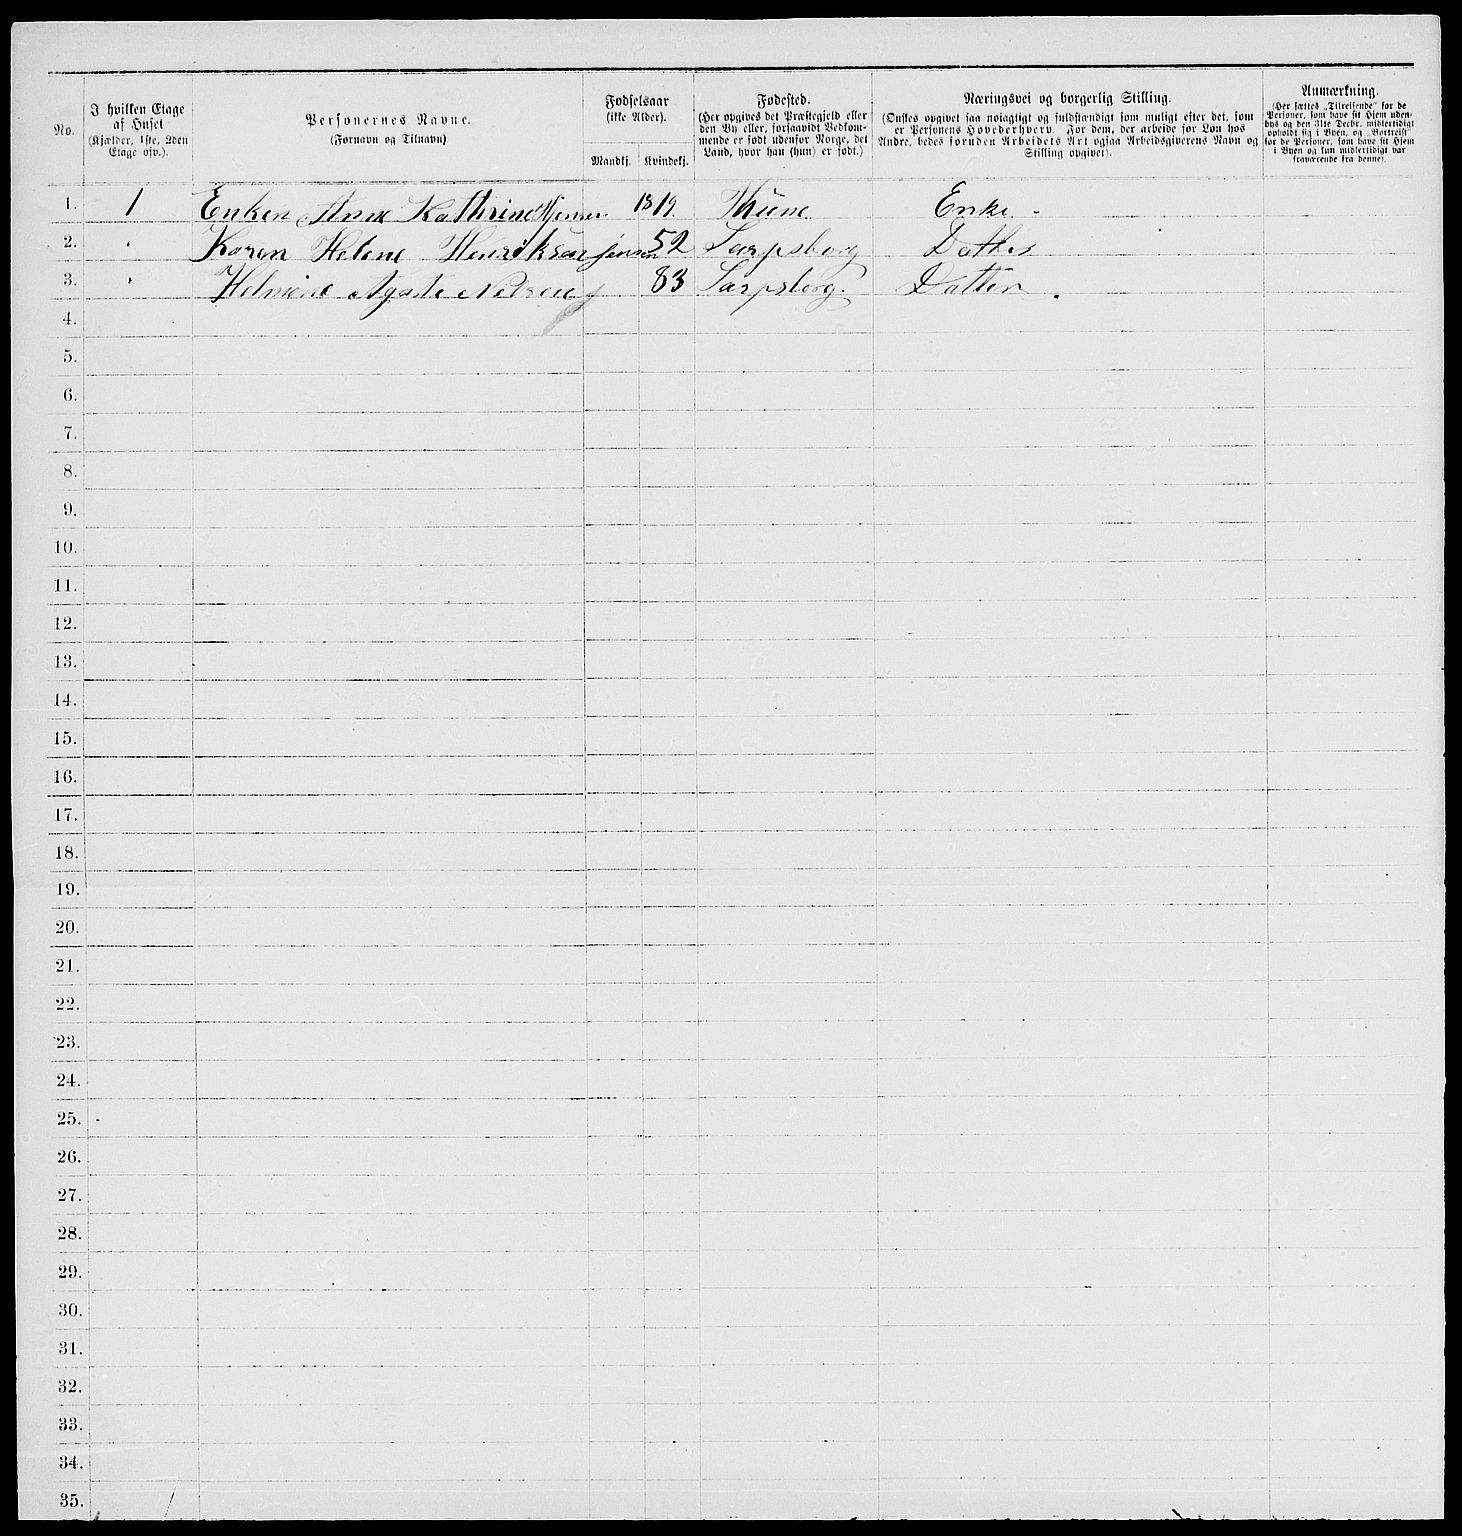 No.
I hvilken Etage af Huset (Kjælder, 1ste, 2den Etage osv.).
Personernes Navne.
(Fornavn og Tilnavn)
Fødselsaar
(ikke Alder).
Mandkj. Kvindekj.
Fødested.
(Her opgives det Præstegjeld eller
den By eller, forsaavidt Vedkom-
mende er født udenfor Norge, det
Land, hvor han (hun) er født.)
Næringsvei og borgerlig Stilling.
(Ønskes opgivet saa nøiagtigt og fuldstændigt som muligt efter det, som
er Personens Hovederhverv. For dem, der arbeide for Løn hos
Andre, bedes foruden Arbeidets Art ogsaa Arbeidsgiverens Navn og
Stilling opgivet).
Anmærkning.
(Her sættes „Tilreisende" for de
Personer, som have sit Hjem uden-
bys og den 31te Decbr. midlertidigt
opholdt sig i Byen, og „Bortreist"
for de Personer, som have sit Hjem
i Byen og kun midlertidigt var
fraværende fra denne).
1. 1 Enken Anne Kathrine 1819. Thune Enke.
2. Karen Helene Henriksen Jensen 52 Sarpsborg Datter
3. Agate 83 Sarpsborg. Datter.
4.
5.
6.
7.
8.
9.
10.
11.
12.
13.
14.
15.
16.
17.
18.
19.
20.
21.
22.
23.
24.
25.
26.
27.
28.
29.
30.
31.
32.
33.
34.
35.